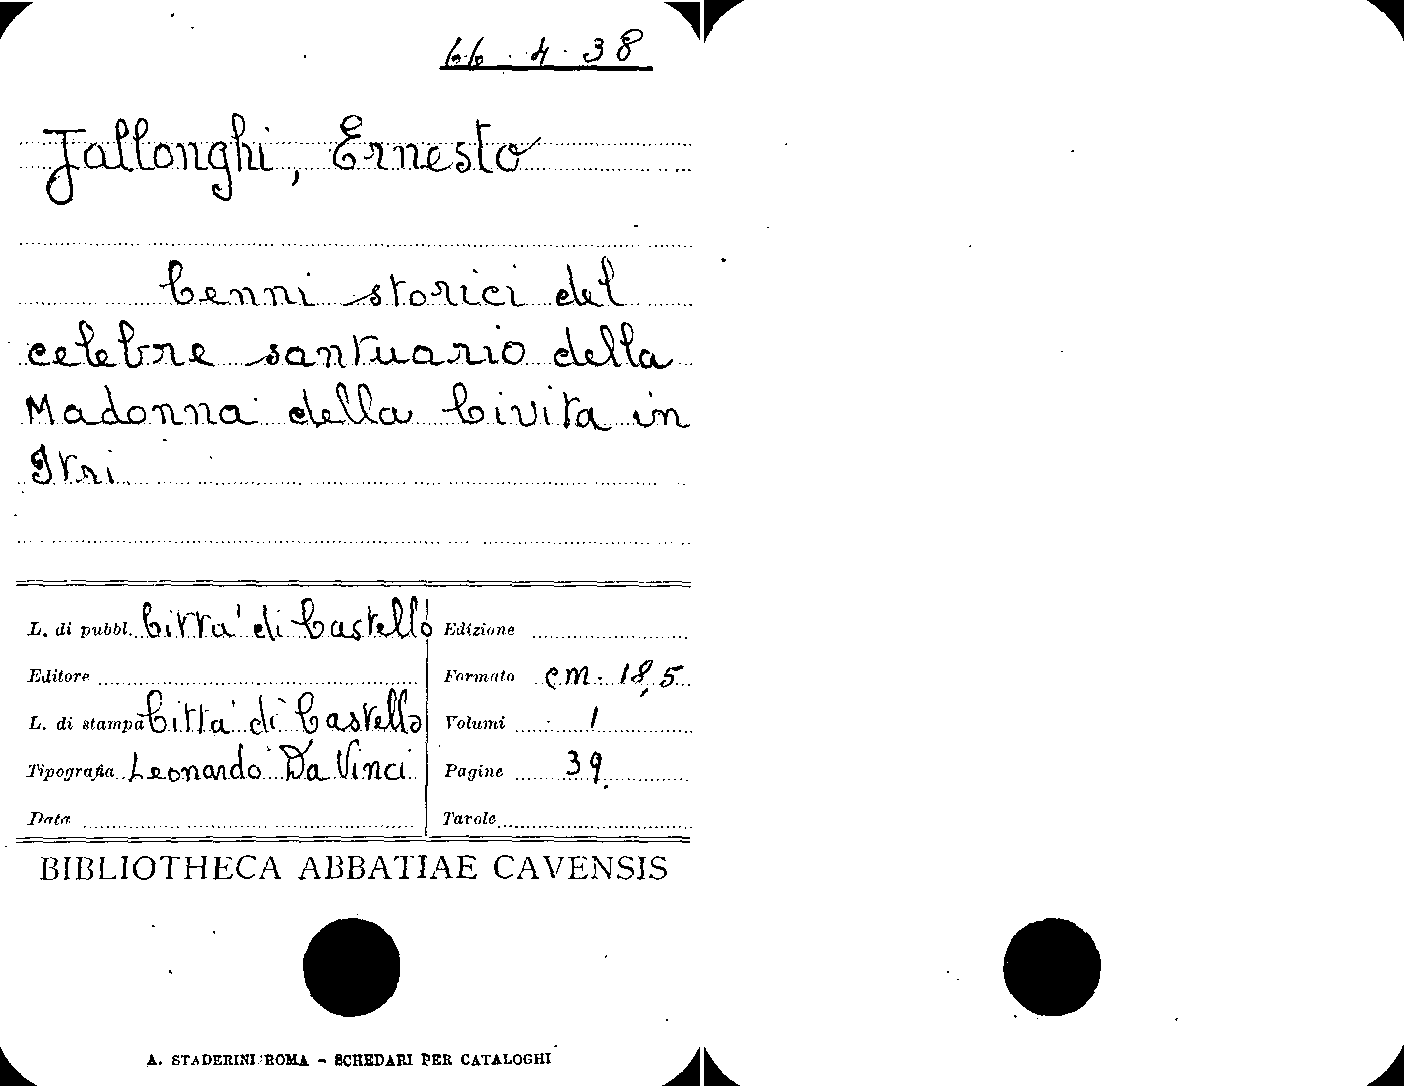 66.4.38
Jallonghi, Ernesto
Cenni storici del
celebre santuario della
Madonna della Civita in
Itri
L. di pubbl. Città di Castello
Edizione
Editore
Formato cm. 18,5
L. di stampa Città di Castello
Volumi 1
Tipografia Leonardo Da Vinci
Pagine 39
Data
Tavole
BIBLIOTHECA ABBATIAE CAVENSIS
A. STADERINI ROMA - SCHEDARI PER CATALOGHI